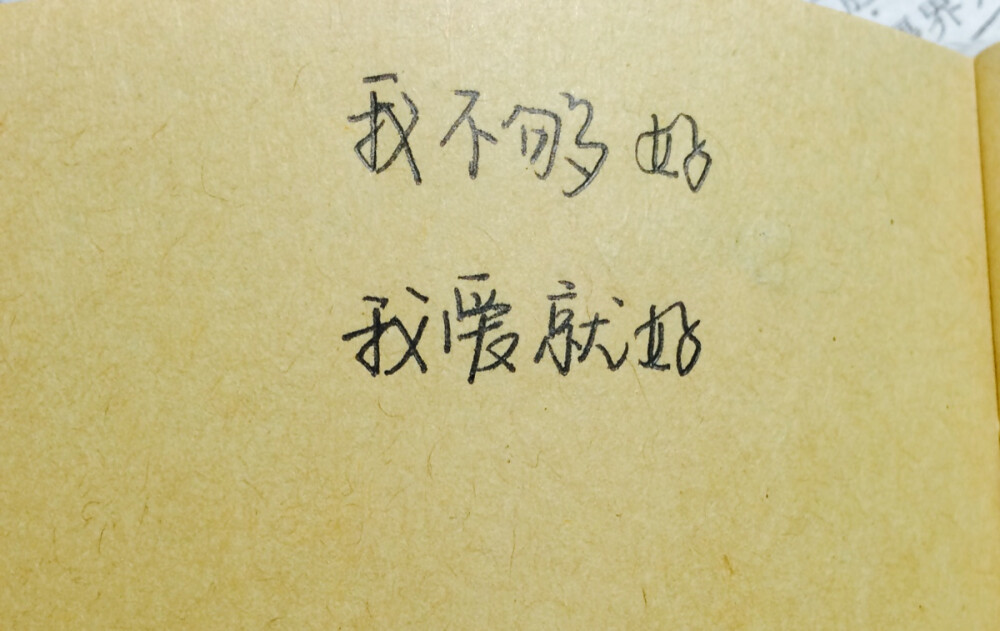 我不够好
我爱就好
界